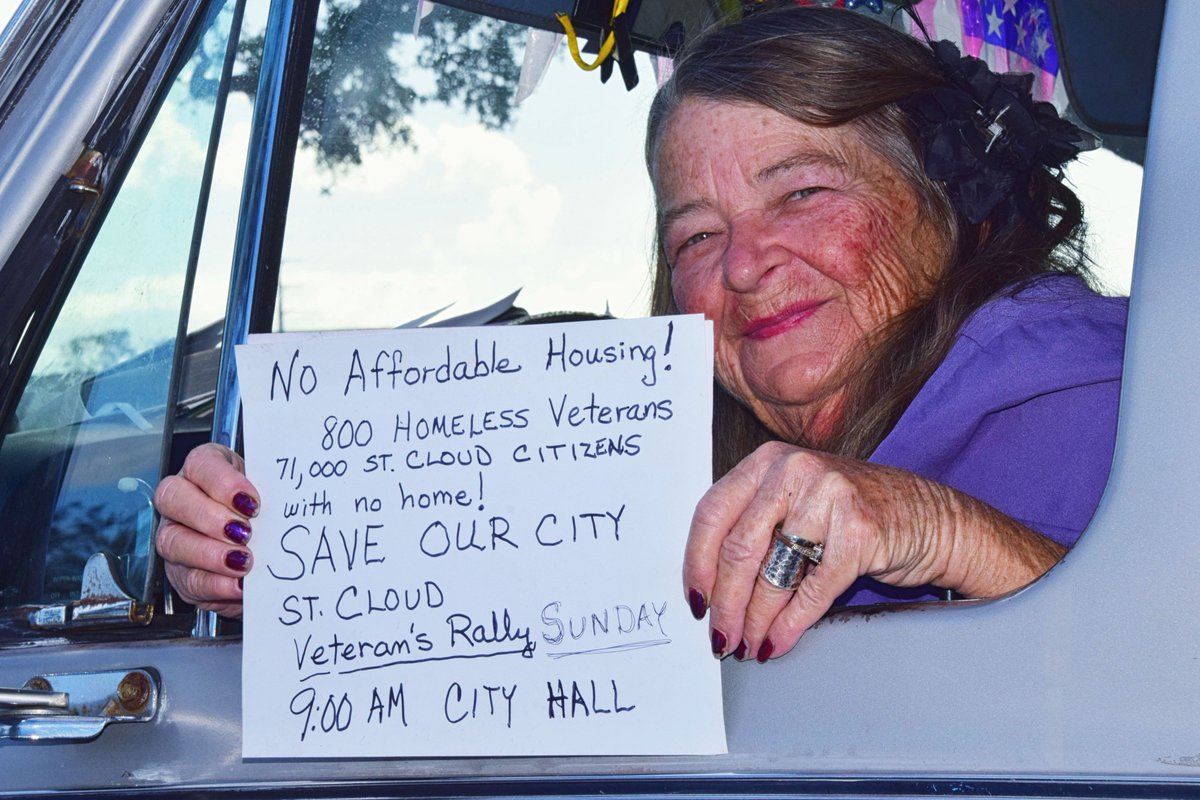 No Affordable Housing!
800 HOMELESS Veterans
71,000 ST. CLOUD CITIZENS
with no home!
SAVE OUR CITY
ST. CLOUD
Veteran's Rally SUNDAY
9:00 AM CITY HALL